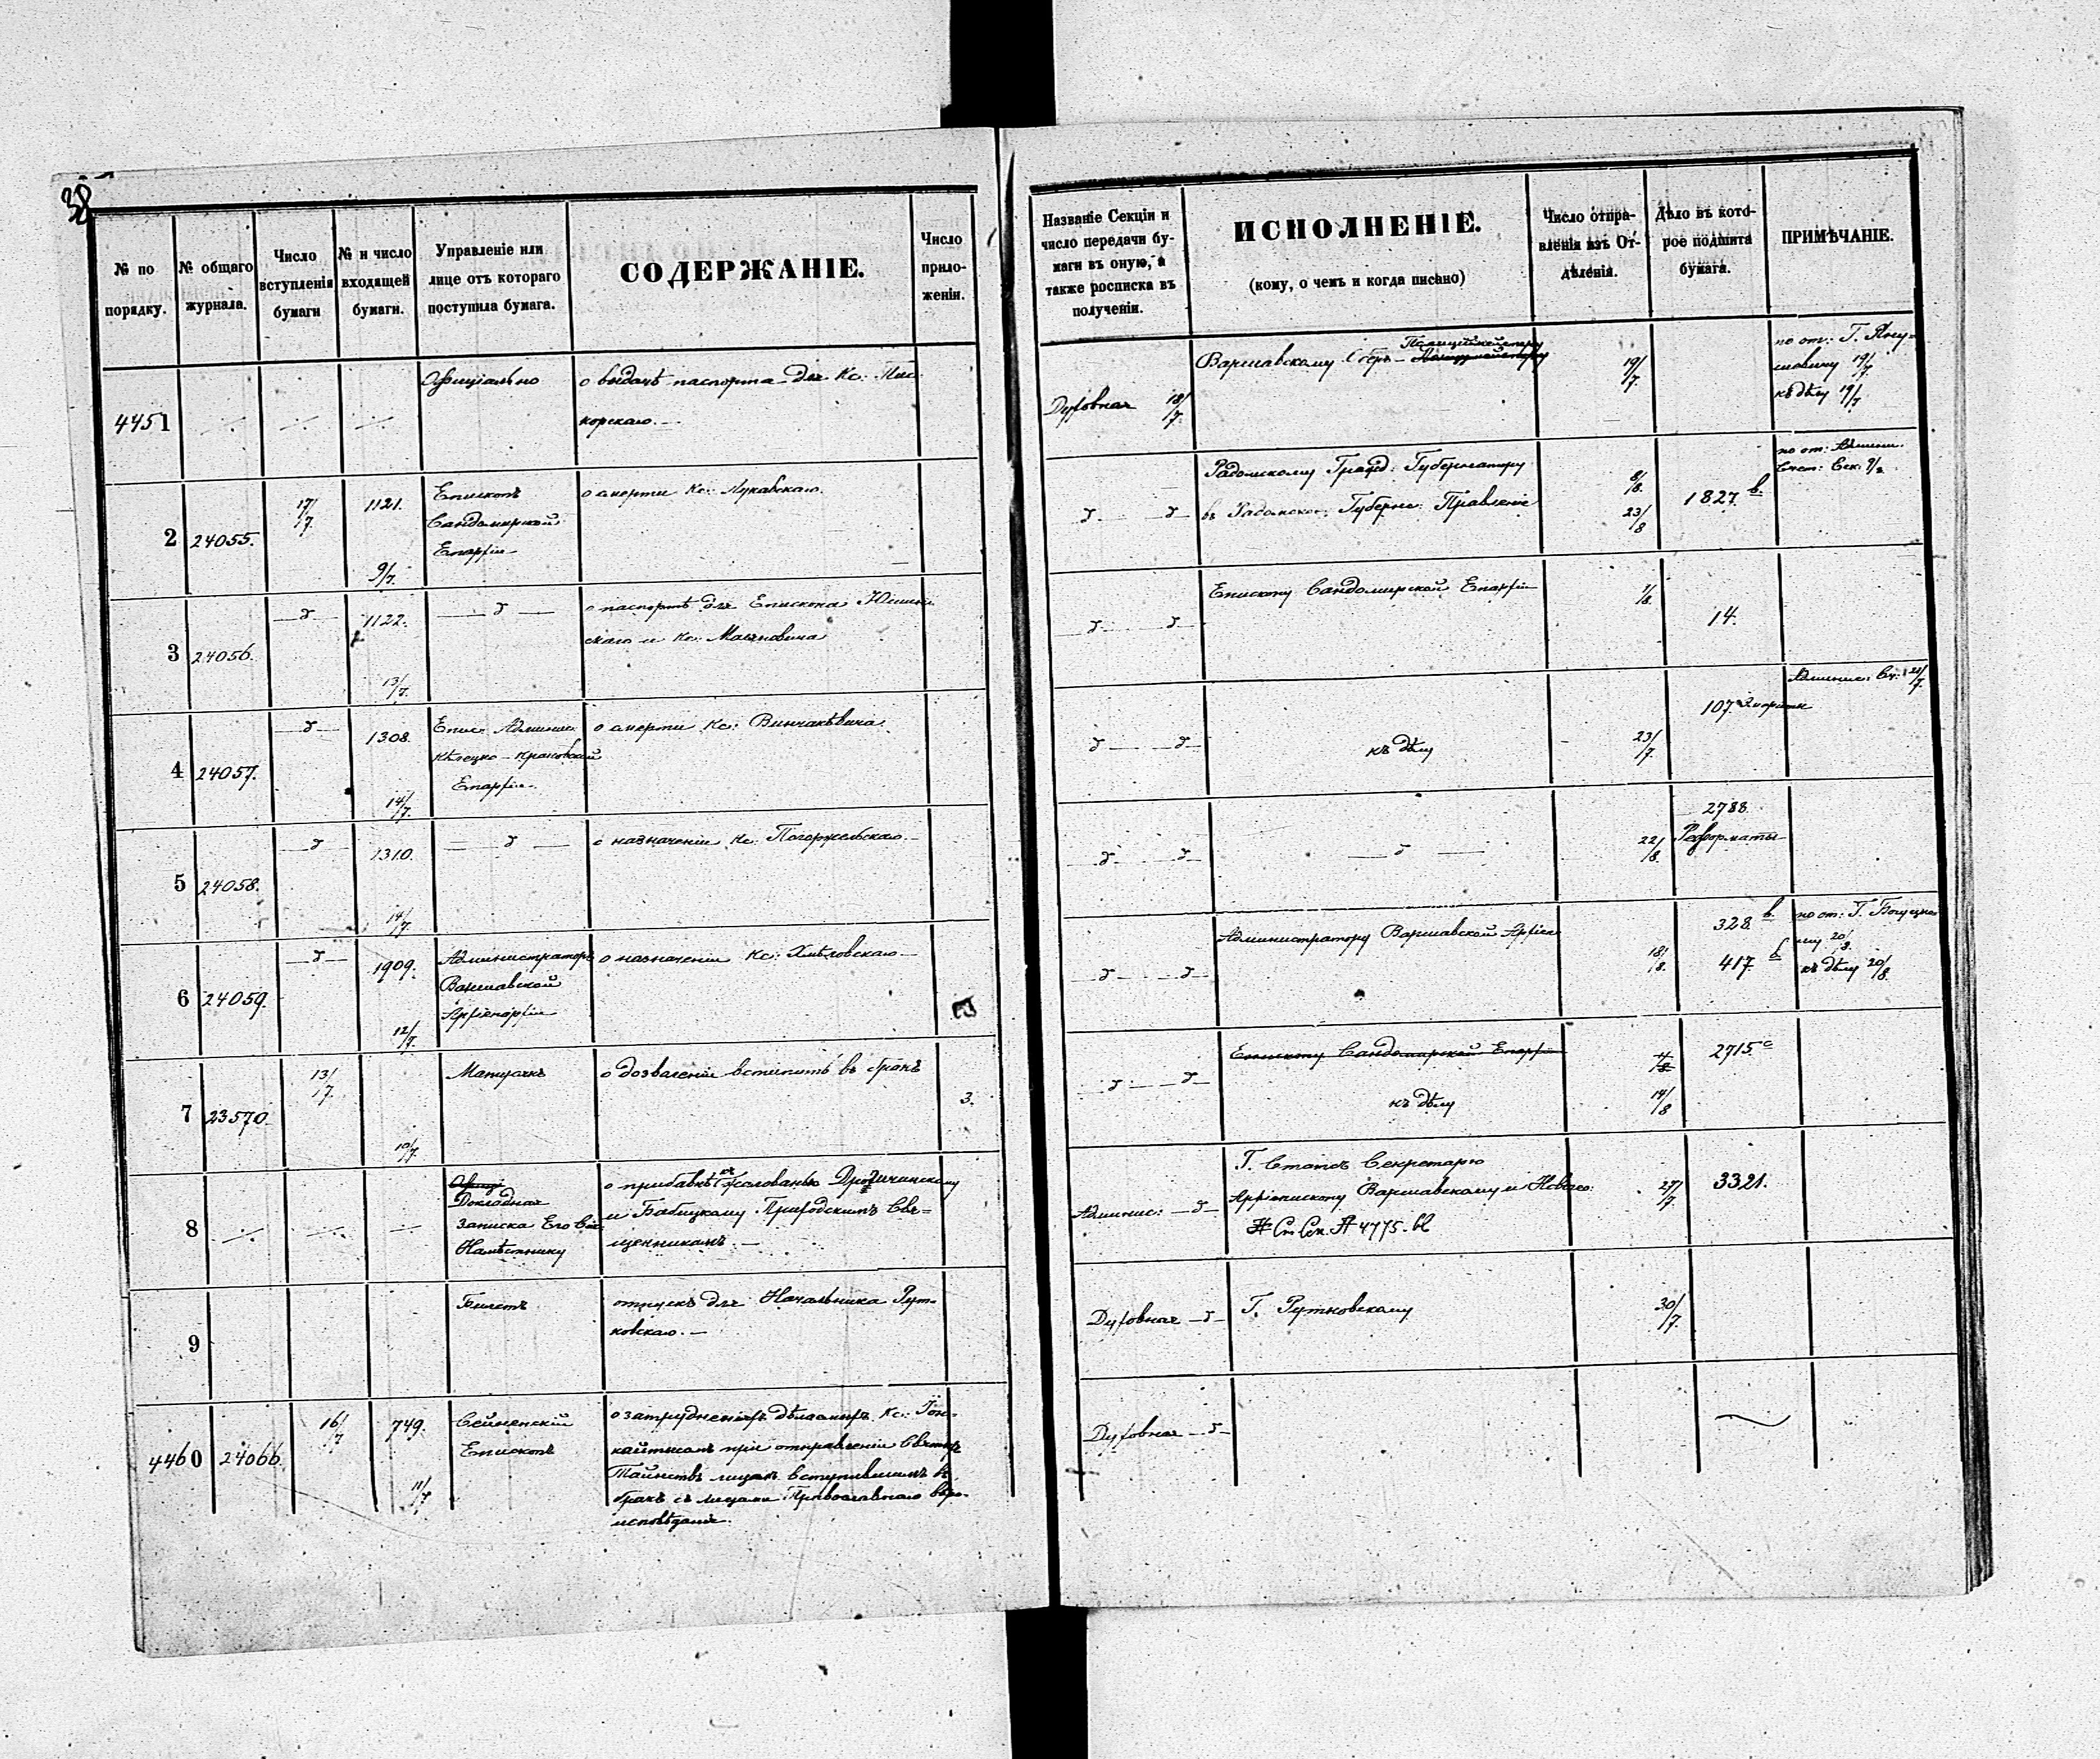 38
№ по порядку.
№ общаго журнала.
Число вступленія бумаги
№ и число входящей бумаги.
Управленіе или лице отъ котораго поступила бумага.
СОДЕРЖАНІЕ.
Число приложеніи.
Названіе Секціи и число передачи бумаги въ оную, а также росписка въ полученіи.
ИСПОЛНЕНІЕ.
(кому, о чемъ и когда писано)
Число отправленія изъ Отдѣленія.
Дѣло въ которое подшита бумага.
ПРИМѢЧАНІЕ.
4451
Офиціально
о выдачѣ паспорта для Кс:
корскаго. —
Духовная 18/7.
Варшавскому Оберъ-Полицеймейстеру
19/7.
по от: Г.
19/7.
къ дѣлу 19/7
2 24055.
17/7.
1121.
9/7.
Епископъ
Сандомирской
Епархіи
о смерти Кс: Лукавскаго.
Радомскому Гражд: Губернатору
въ Радомское: Губернс: Правленіе
8/8.
23/8
1827 b.
по от:
3 24056.
1122.
13/7.
о паспортѣ для Епископа Юшин-
скаго и Кс:
Епископу Сандомирской Епархіи
1/8.
14.
4 24057.
1308.
14/7.
Епис: Админис:
Кѣлецко-Краковской
Епархіи.
о смерти Кс: Винчакѣвича.
къ дѣлу
23/7.
107.
Админис: 21/7.
5 24058.
1310.
14/7.
о назначеніи Кс: Погоржельскаго. —
22/8.
2788.
Реформаты
6 24059.
1909.
12/7.
Администраторъ
Варшавской
Архіепархіи
о назначеніи Кс: Хмѣловскаго —
Администратору Варшавской Архіеп
18/8.
328 b.
417 b
по от: Г.
20/8.
къ дѣлу 20/8.
7 23570.
13/7.
10/7.
Матушкъ
о дозволеніи вступить въ бракъ
3.
Епископу Сандомирской Епархіи
къ дѣлу
14/8
2715 c
8
Докладная
записка Его Сіят
Намѣстнику
о прибавкѣ жалованья Дрогичинскому
и Бабицкому Приходскимъ Свя=
щенникамъ. —
Админис:
Г. Статсъ Секретарю
Архіепископу Варшавскому и Новоге:
4775
27/7.
3321.
9
Билетъ
отпускъ для Начальника Рут-
ковскаго. —
Духовная
Г. Рутковскому
30/7.
4460 24066.
16/7
749.
11/7
Сейненскій
Епископъ
о затрудненіяхъ дѣлаемыхъ Кс: Гон-
при отправленіи Святыхъ
Таинствъ лицамъ вступившимъ въ
бракъ съ лицами Православнаго вѣро-
исповѣданія.
Духовная